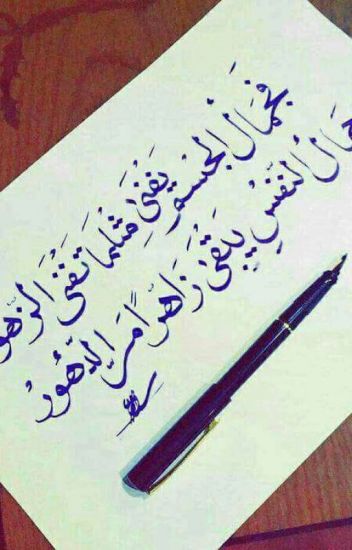 فَجَمَالُ الْجِسْمِ يَفْنَى مِثْلَمَا تَفْنَى الزَّهو
مَالُ النَّفْسِ يَبْقَى زَاهِرًا مَرَّ الدُّهُورُ